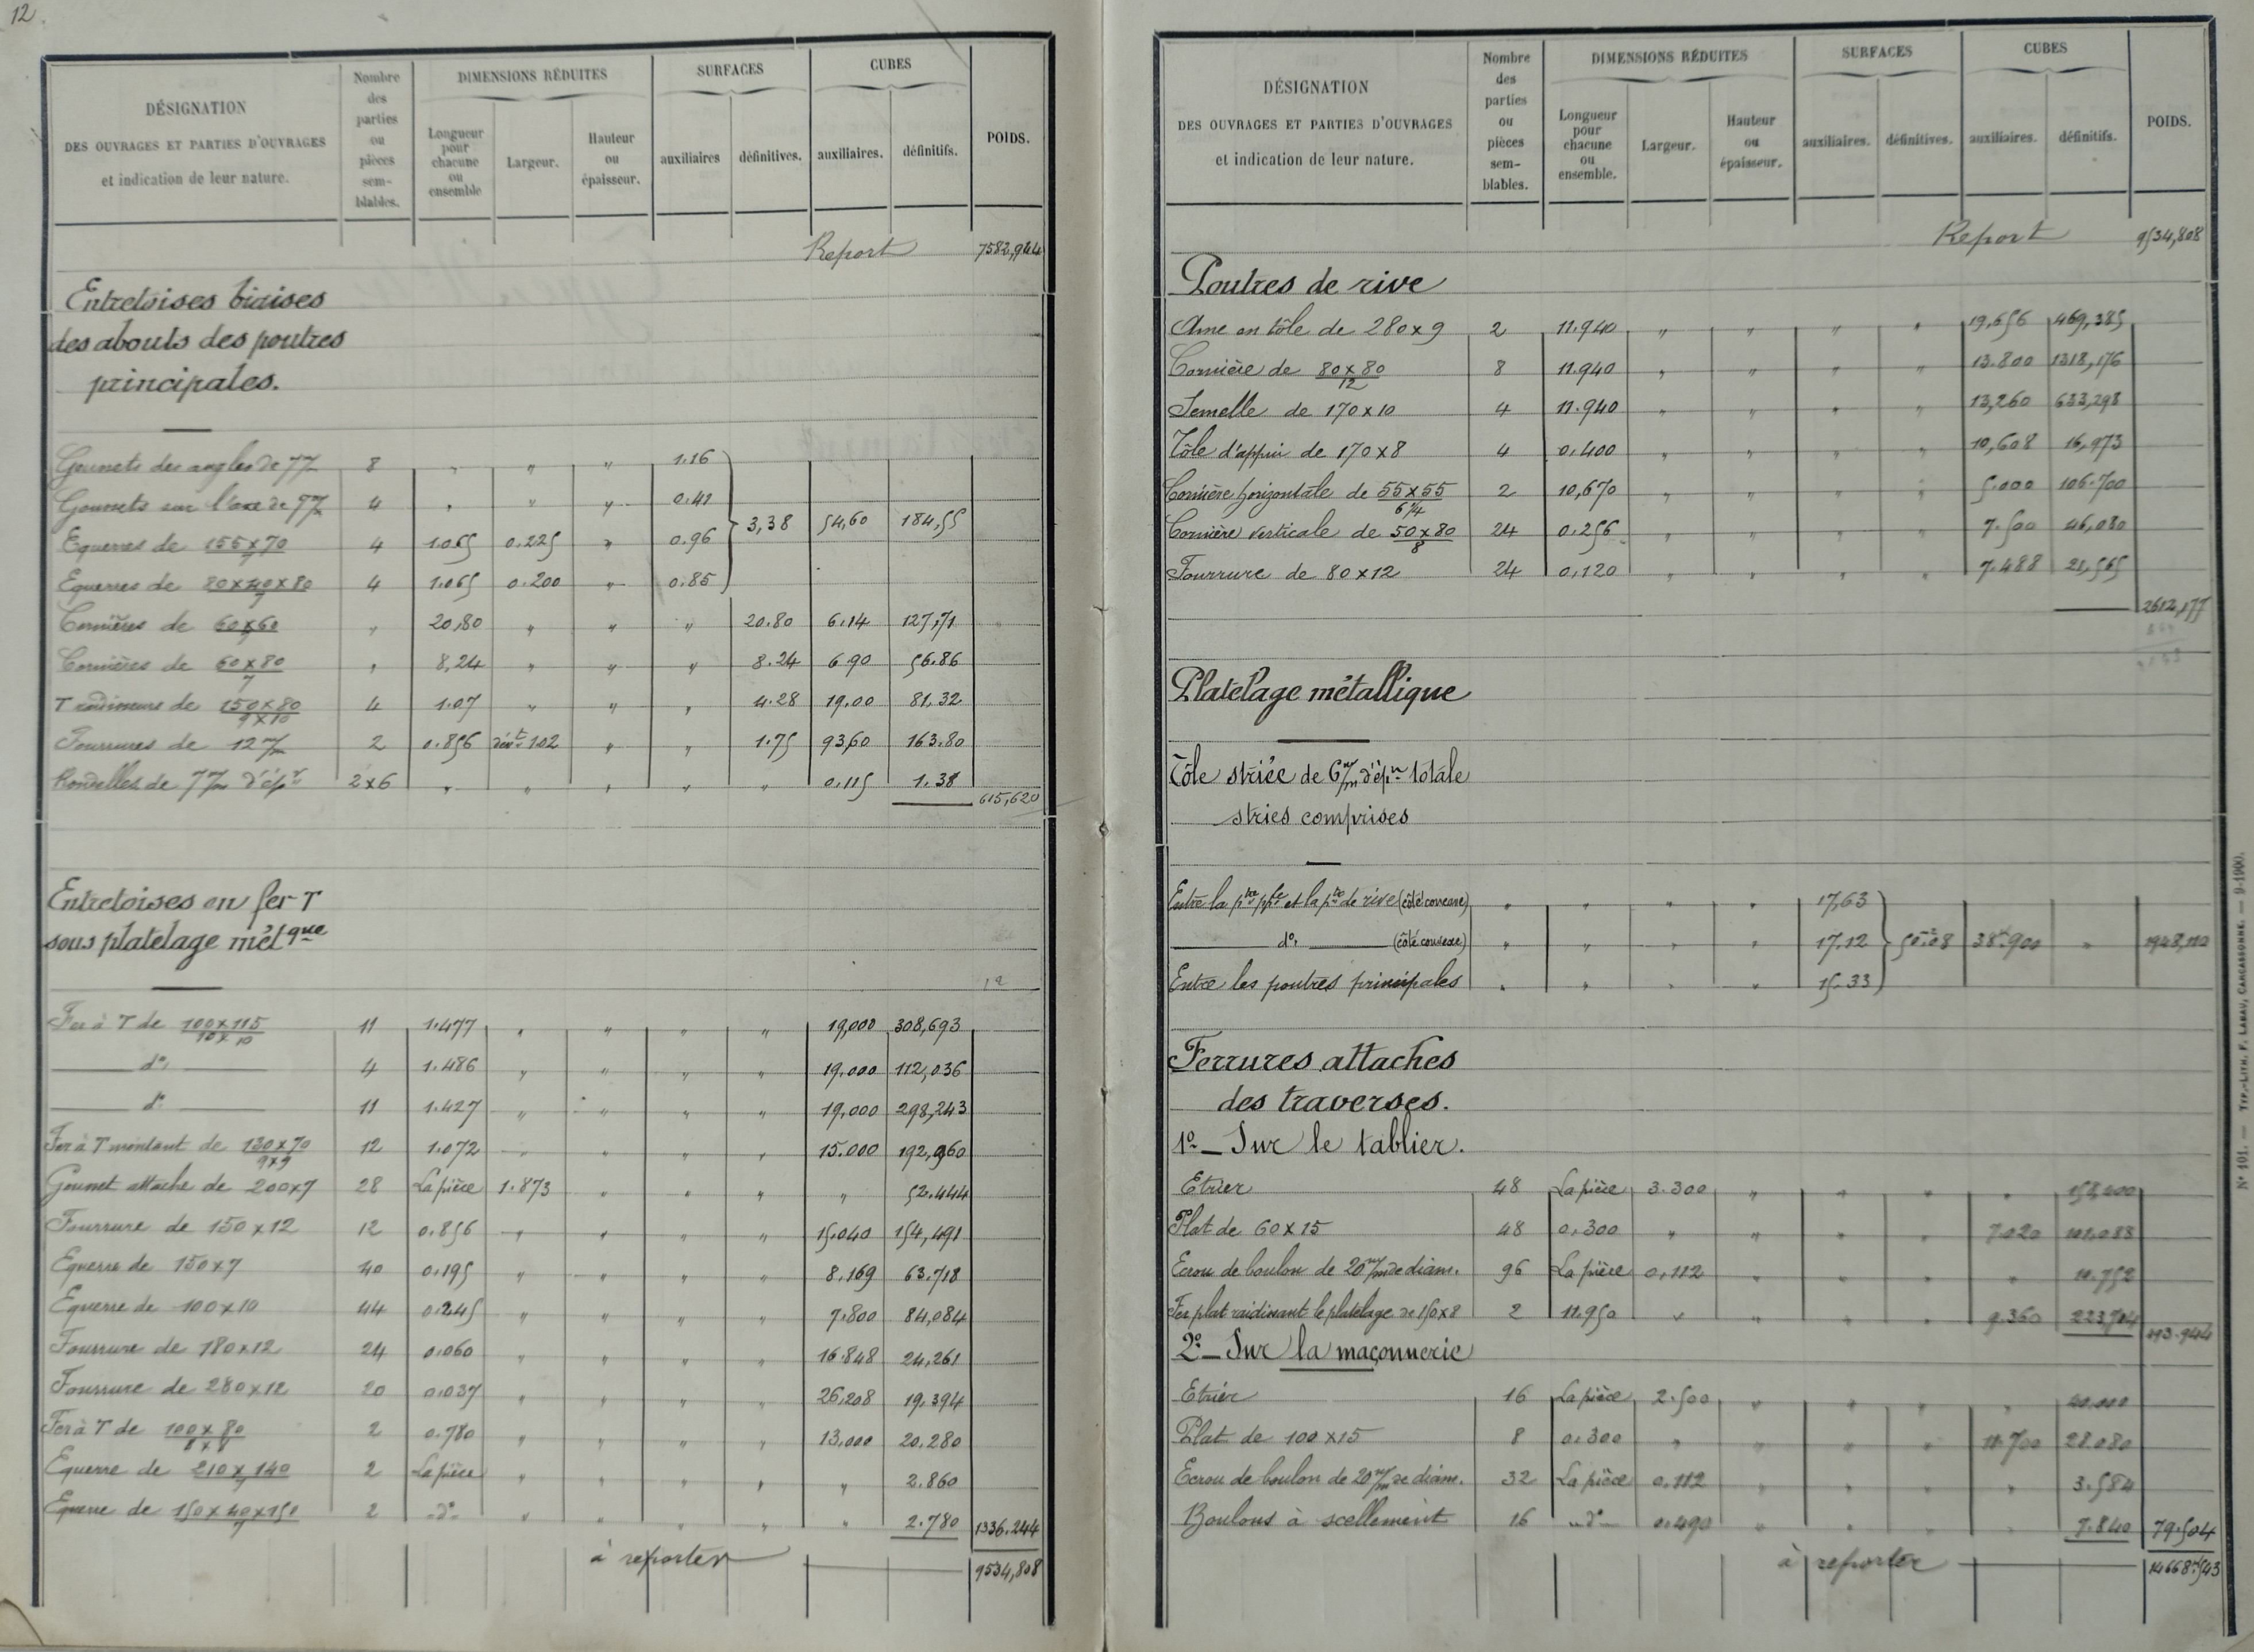 12.
DÉSIGNATION
DES OUVRAGES ET PARTIES D'OUVRAGES
et indication de leur nature.
Nombre
des
parties
ou
pièces
sem-
blables.
DIMENSIONS RÉDUITES
Longueur
pour
chacune
ou
ensemble
Largeur.
Hauteur
ou
épaisseur.
SURFACES
auxiliaires
définitives.
CUBES
auxiliaires.
définitifs.
POIDS.
Report 7582,944
Entretoises biaises
des abouts des poutres
principales.
Goussets des angles de 7m/m 8 " " " 1.16
Goussets sur l'axe de 7m/m 4 " " " 0.41
3,38 54,60 184,55
Equerres de 155x70/7 4 1.065 0.225 " 0.96
Equerres de 80x40x80/7 4 1.065 0.200 " 0.85
Cornières de 60x60 " 20,80 " " " 20.80 6.14 127,71
Cornières de 60x80/7 " 8,24 " " " 8.24 6.90 56.86
T raidisseurs de 150x80/9x10 4 1.07 " " " 4.28 19,00 81,32
Fourrures de 12m/m 2 0.856 dévt 1.02 " " 1.75 93,60 163.80
Rondelles de 7m/m d'épr 2x6 " " " " " 0.115 1.38
615,620
Entretoises en fer T
sous platelage métque
Fer à T de 100x115/10x10 11 1.477 " " " " 19,000 308,693
do 4 1.486 " " " " 19.000 112,036
do 11 1.427 " " " " 19,000 298,243
Fer à T montant de 130x70/9x9 12 1.072 " " " " 15.000 192,960
Gousset attache de 200x7 28 La pièce 1.873 " " " " 52.444
Fourrure de 150x12 12 0.856 " " " " 15.040 154,491
Equerre de 150x7 40 0.195 " " " " 8.169 63.718
Equerre de 100x10 44 0.245 " " " " 7.800 84,084
Fourrure de 180x12 24 0.060 " " " " 16.848 24,261
Fourrure de 280x12 20 0.037 " " " " 26,208 19,394
Fer à T de 100x80/8x8 2 0.780 " " " " 13,000 20.280
Equerre de 210x140 2 La pièce " " " " " 2.860
Equerre de 150x40x150/7 2 do " " " " " 2.780 1336.244
à reporter 9534,808
DÉSIGNATION
DES OUVRAGES ET PARTIES D'OUVRAGES
et indication de leur nature.
Nombre
des
parties
ou
pièces
sem-
blables.
DIMENSIONS RÉDUITES
Longueur
pour
chacune
ou
ensemble.
Largeur.
Hauteur
ou
épaisseur.
SURFACES
auxiliaires.
définitives.
CUBES
auxiliaires.
définitifs.
POIDS.
Report 9534,808
Poutres de rive
Ame en tôle de 280x9 2 11.940 " " " " 19,656 469,385
Cornière de 80x80/12 8 11.940 " " " " 13.800 1318,176
Semelle de 170x10 4 11.940 " " " " 13,260 633,298
Tôle d'appui de 170x8 4 0.400 " " " " 10,608 16,973
Cornière horizontale de 55x55/6 1/4 2 10,670 " " " " 5.000 106.700
Cornière verticale de 50x80/8 24 0.256 " " " " 7.500 46,080
Fourrure de 80x12 24 0,120 " " " " 7.488 21,565
2612,177
Platelage métallique
Tôle striée de 6m/m d'épr totale
stries comprises
Entre la ptre ple et la ptre de rive (côté concave) " " " " 17,63
do (côté convexe) " " " " 17.12 50.08 38k900 " 1948,112
Entre les poutres principales " " " " 15.33
Ferrures attaches
des traverses.
1o_ Sur le tablier.
Etrier 48 La pièce 3.300 " " " " 158,400
Plat de 60x15 48 0.300 " " " " 7.020 101,088
Ecrou de boulon de 20m/m de diam. 96 La pièce 0,112 " " " " 10.752
Fer plat raidissant le platelage de 150x8 2 11.950 " " " " 9.360 223,704
493.944
2o_ Sur la maçonnerie
Etrier 16 La pièce 2.500 " " " " 40.000
Plat de 100x15 8 0.300 " " " " 11.700 28.080
Ecrou de boulon de 20m/m de diam. 32 La pièce 0.112 " " " " 3.584
Boulons à scellement 16 do 0.490 " " " " 7.840 79.504
à reporter 14668.543
No 101. — TYP.-LITH. F. LABAU, CARCASSONNE. — 9-1900.